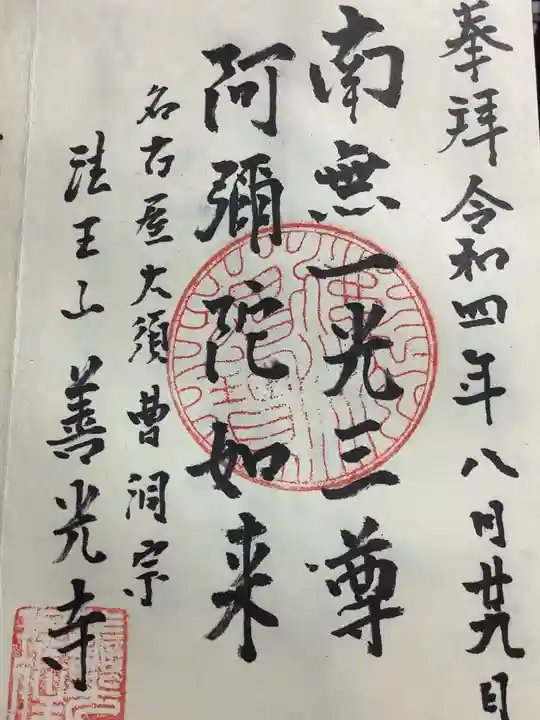 奉拜 令和四年八月廿九日
南無一光三尊
阿彌陀如来
名古屋大須 曹洞宗
法王山 善光寺